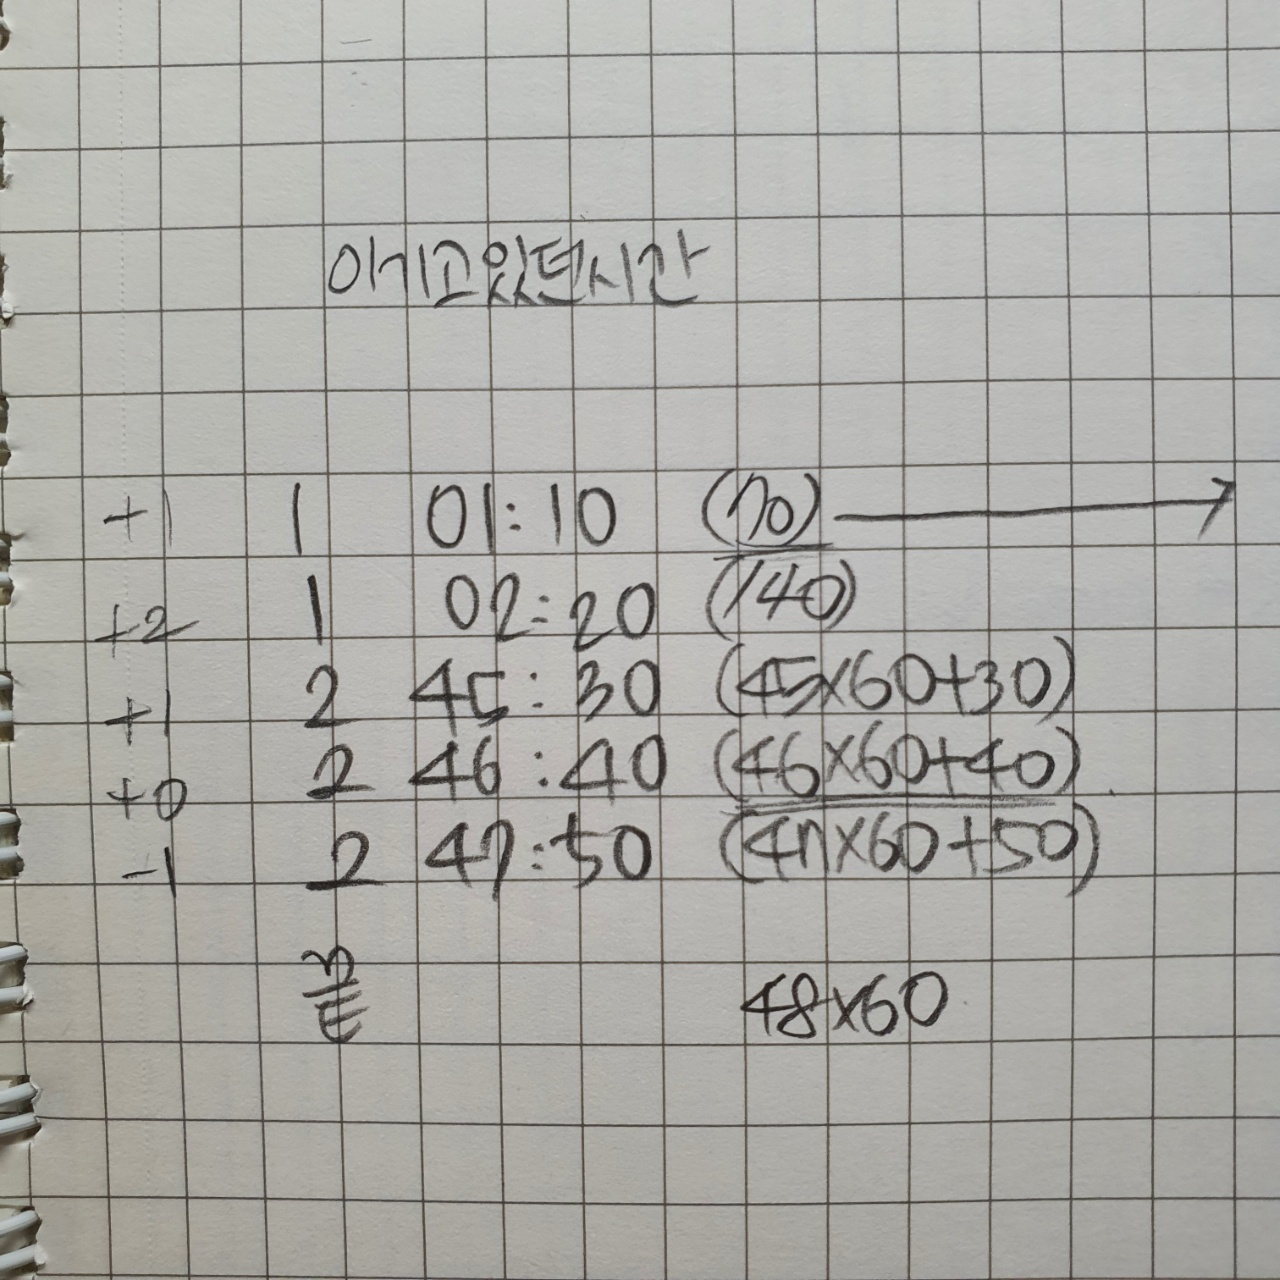 이기고있던시간
+1 1 01:10 (70)
+2 1 02:20 (140)
+1 2 45:30 (45x60+30)
+0 2 46:40 (46x60+40)
-1 2 47:50 (47x60+50)
48x60